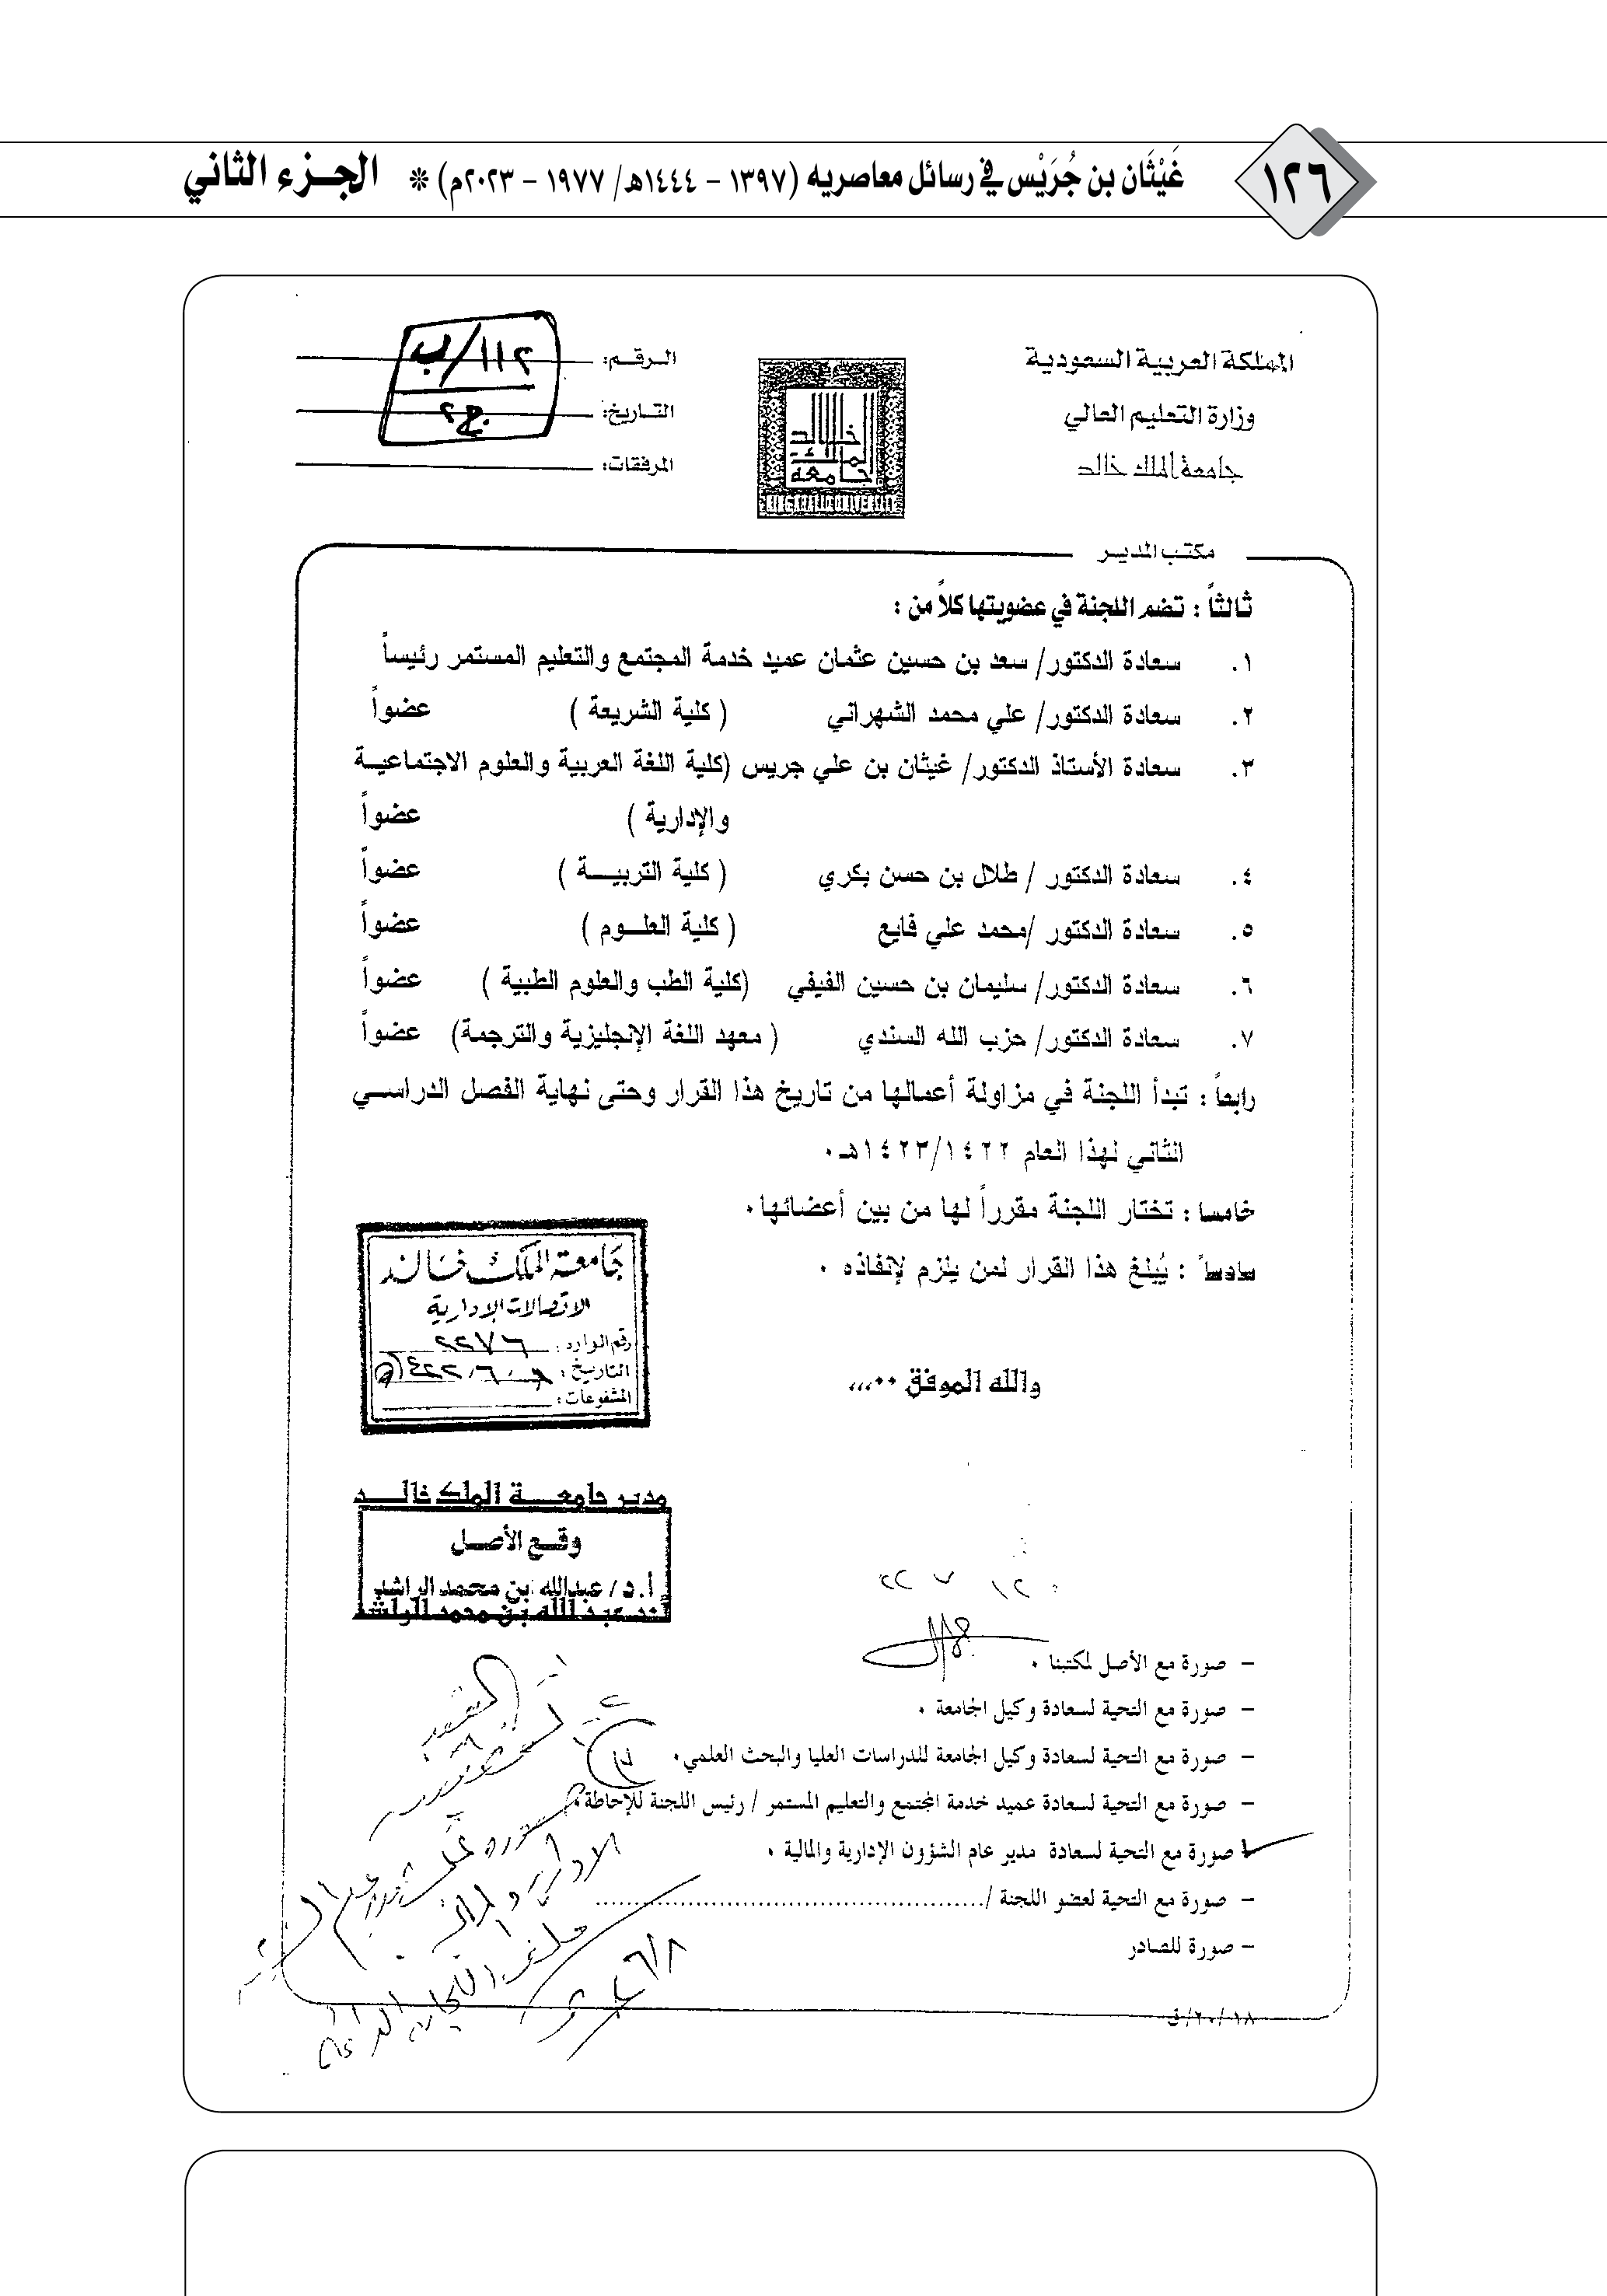 ١٢٦
غَيْثَان بن جُرَيْس في رسائل معاصريه (١٣٩٧ - ١٤٤٤هـ/ ١٩٧٧ - ٢٠٢٣م) * الجزء الثاني
المملكة العربية السعودية
وزارة التعليم العالي
جامعة الملك خالد
جامعة الملك خالد
KING KHALID UNIVERSITY
الرقم: ١١٢/ب
التاريخ:
المرفقات:
مكتب المدير
ثالثاً : تضم اللجنة في عضويتها كلاً من :
١. سعادة الدكتور/ سعد بن حسين عثمان عميد خدمة المجتمع والتعليم المستمر رئيساً
٢. سعادة الدكتور/ علي محمد الشهراني ( كلية الشريعة ) عضواً
٣. سعادة الأستاذ الدكتور/ غيثان بن علي جريس (كلية اللغة العربية والعلوم الاجتماعية
والإدارية ) عضواً
٤. سعادة الدكتور / طلال بن حسن بكري ( كلية التربيـــة ) عضواً
٥. سعادة الدكتور /محمد علي فايع ( كلية العلـــوم ) عضواً
٦. سعادة الدكتور/ سليمان بن حسين الفيفي (كلية الطب والعلوم الطبية ) عضواً
٧. سعادة الدكتور/ حزب الله السندي ( معهد اللغة الإنجليزية والترجمة) عضواً
رابعاً : تبدأ اللجنة في مزاولة أعمالها من تاريخ هذا القرار وحتى نهاية الفصل الدراسـي
الثاني لهذا العام ١٤٢٣/١٤٢٢هـ٠
خامسا : تختار اللجنة مقرراً لها من بين أعضائها٠
سادساً : يُبلغ هذا القرار لمن يلزم لإنفاذه ٠
جامعة الملك خالد
الاتصالات الإدارية
رقم الوارد : ٢٢٧٦
التاريخ :
المشفوعات :
والله الموفق ٠٠،،،
مدير جامعـــة الملك خالـــد
وقــع الأصــل
أ.د / عبدالله بن محمد الراشد
أ.د عبد الله بن محمد الراشد
١٢ ٧ ٢٢
– صورة مع الأصل لمكتبنا ٠
– صورة مع التحية لسعادة وكيل الجامعة ٠
– صورة مع التحية لسعادة وكيل الجامعة للدراسات العليا والبحث العلمي٠
– صورة مع التحية لسعادة عميد خدمة المجتمع والتعليم المستمر / رئيس اللجنة للإحاطة٠
صورة مع التحية لسعادة مدير عام الشؤون الإدارية والمالية ٠
– صورة مع التحية لعضو اللجنة /..................................................
– صورة للصادر
٦/٨